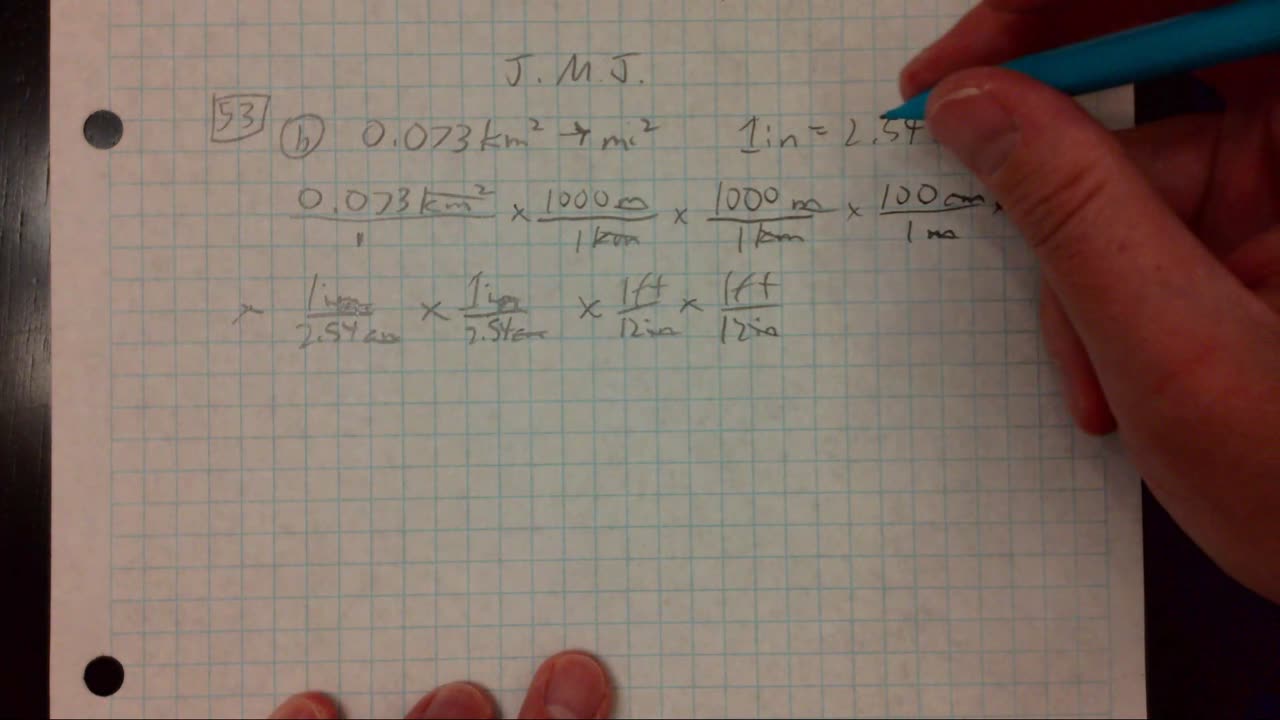 J.M.J.
53 (b) 0.073 km² → mi² 1in = 2.54
0.073 km² / 1 × 1000 m / 1 km × 1000 m / 1 km × 100 cm / 1 m ×
× 1in / 2.54 cm × 1in / 2.54 cm × 1ft / 12in × 1ft / 12in